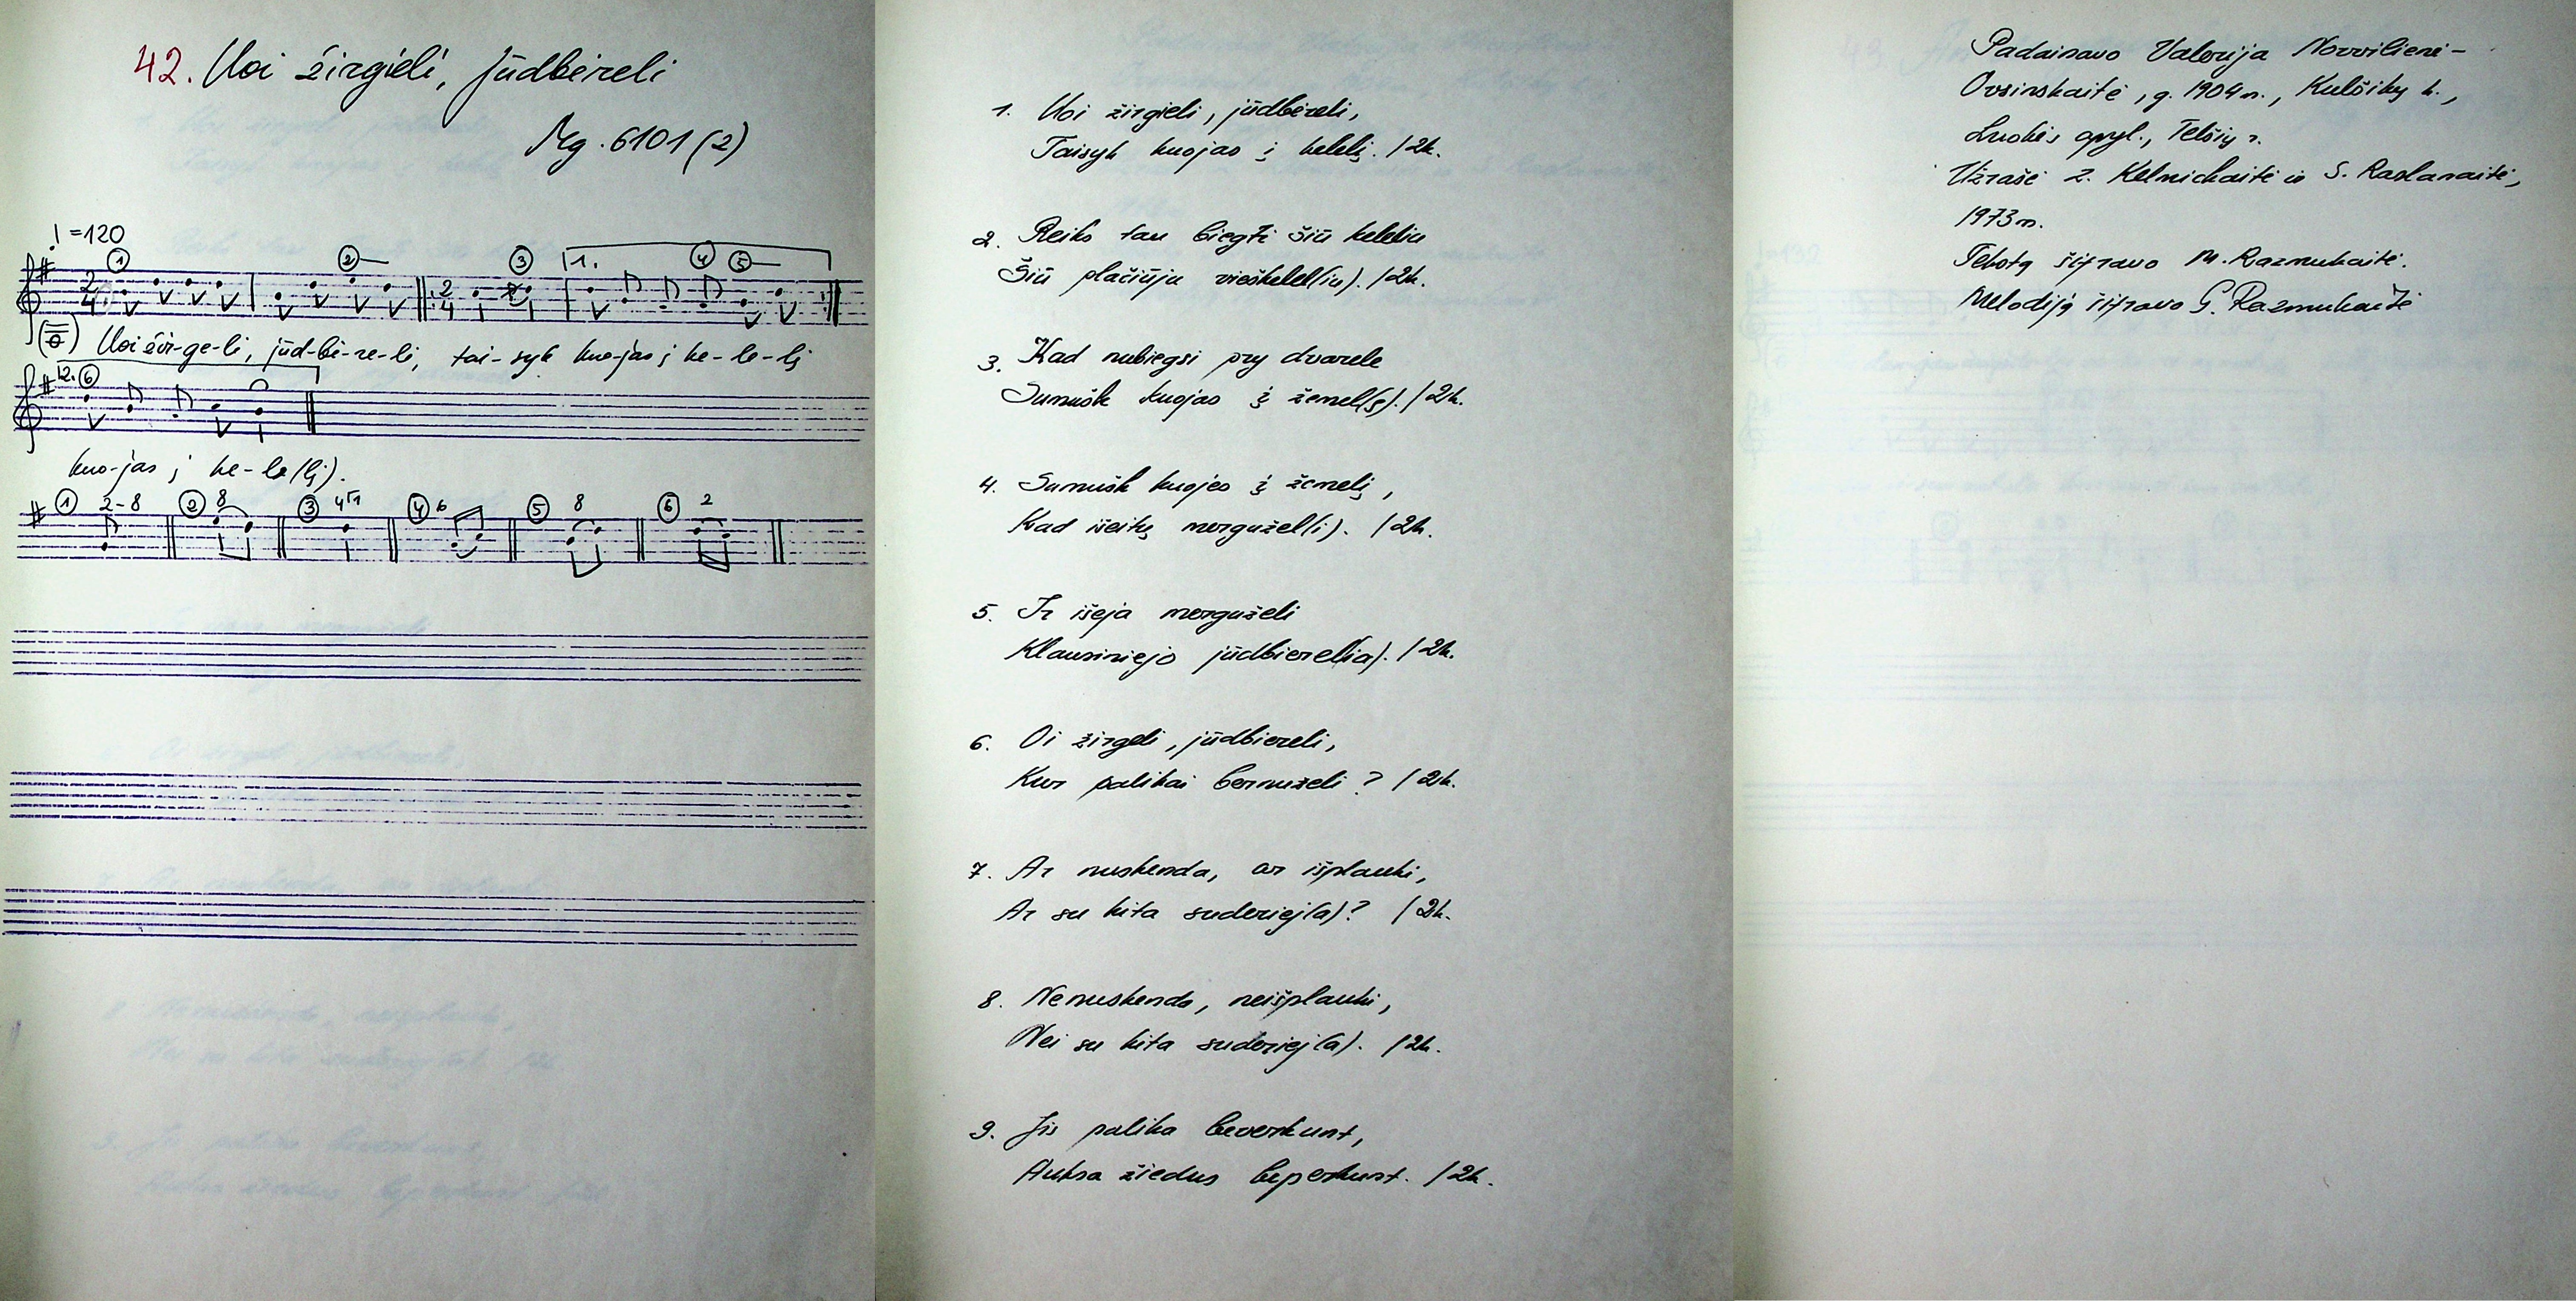 42. Uoi žirgieli, jūdbėreli
Mg. 6101 (2)
♩ = 120
① ② ③ 1. ④ ⑤
2/4 2/4
Uoi žir-ge-li, jūd-bi-re-li, tai-syk kuo-jas į ke-le-lį
2. ⑥
kuo-jas į ke-le(lį).
① 2-8 ② 8 ③ 4 ④ 6 ⑤ 8 ⑥ 2
1. Uoi žirgieli, jūdbėreli,
Taisyk kuojas į kelelį. /2k.
2. Reiks tau biegti šiū keleliu
Šiū plačiūju vieškelel(iu). /2k.
3. Kad nubiegsi pry dvarele
Sumušk kuojas į žemel(ę). /2k.
4. Sumušk kuojes į žemelį,
Kad išeitų mergužel(i). /2k.
5. Ir išeja merguželi
Klausiniejo jūdbierel(ia). /2k.
6. Oi žirgeli, jūdbiereli,
Kur palikai bernuželi? /2k.
7. Ar nuskenda, ar išplauki,
Ar su kita suderiej(a)? /2k.
8. Nenuskenda, neišplauki,
Nei su kita suderiej(a). /2k.
9. Jis palika beverkunt,
Auksa žiedus beperkunt. /2k.
Padainavo Valerija Norvilienė-
Ovsinskaitė, g. 1904 m., Kulšikų k.,
Luokės apyl., Telšių r.
Užrašė Z. Kelmickaitė ir S. Raslanaitė,
1973 m.
Tekstą šifravo M. Razmukaitė.
Melodiją šifravo G. Razmukaitė